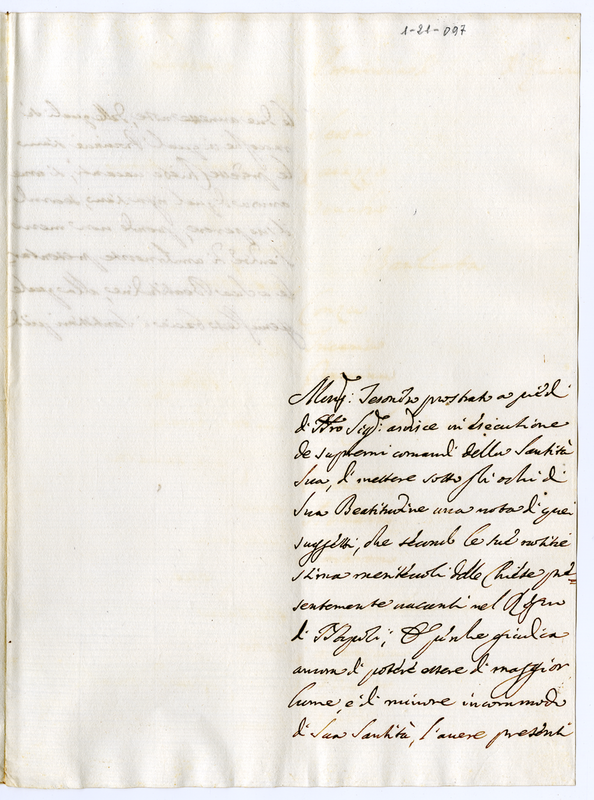 1-21-097
Monsig: Tesoriere prostrato a piedi
di Nro Sigr: ardisce in esecutione
de supremi comandi della Santità
Sua, di mettere sotto gli ochi di
Sua Beatitudine una nota di quei
suggetti, che secondo le sue notitie
stima meritevoli delle Chiese pre
sentemente vacanti nel Regno
di Napoli; E perche giudica
ancora di potere essere di maggior
lume, e di minore incommodo
di Sua Santità, l'avere presenti